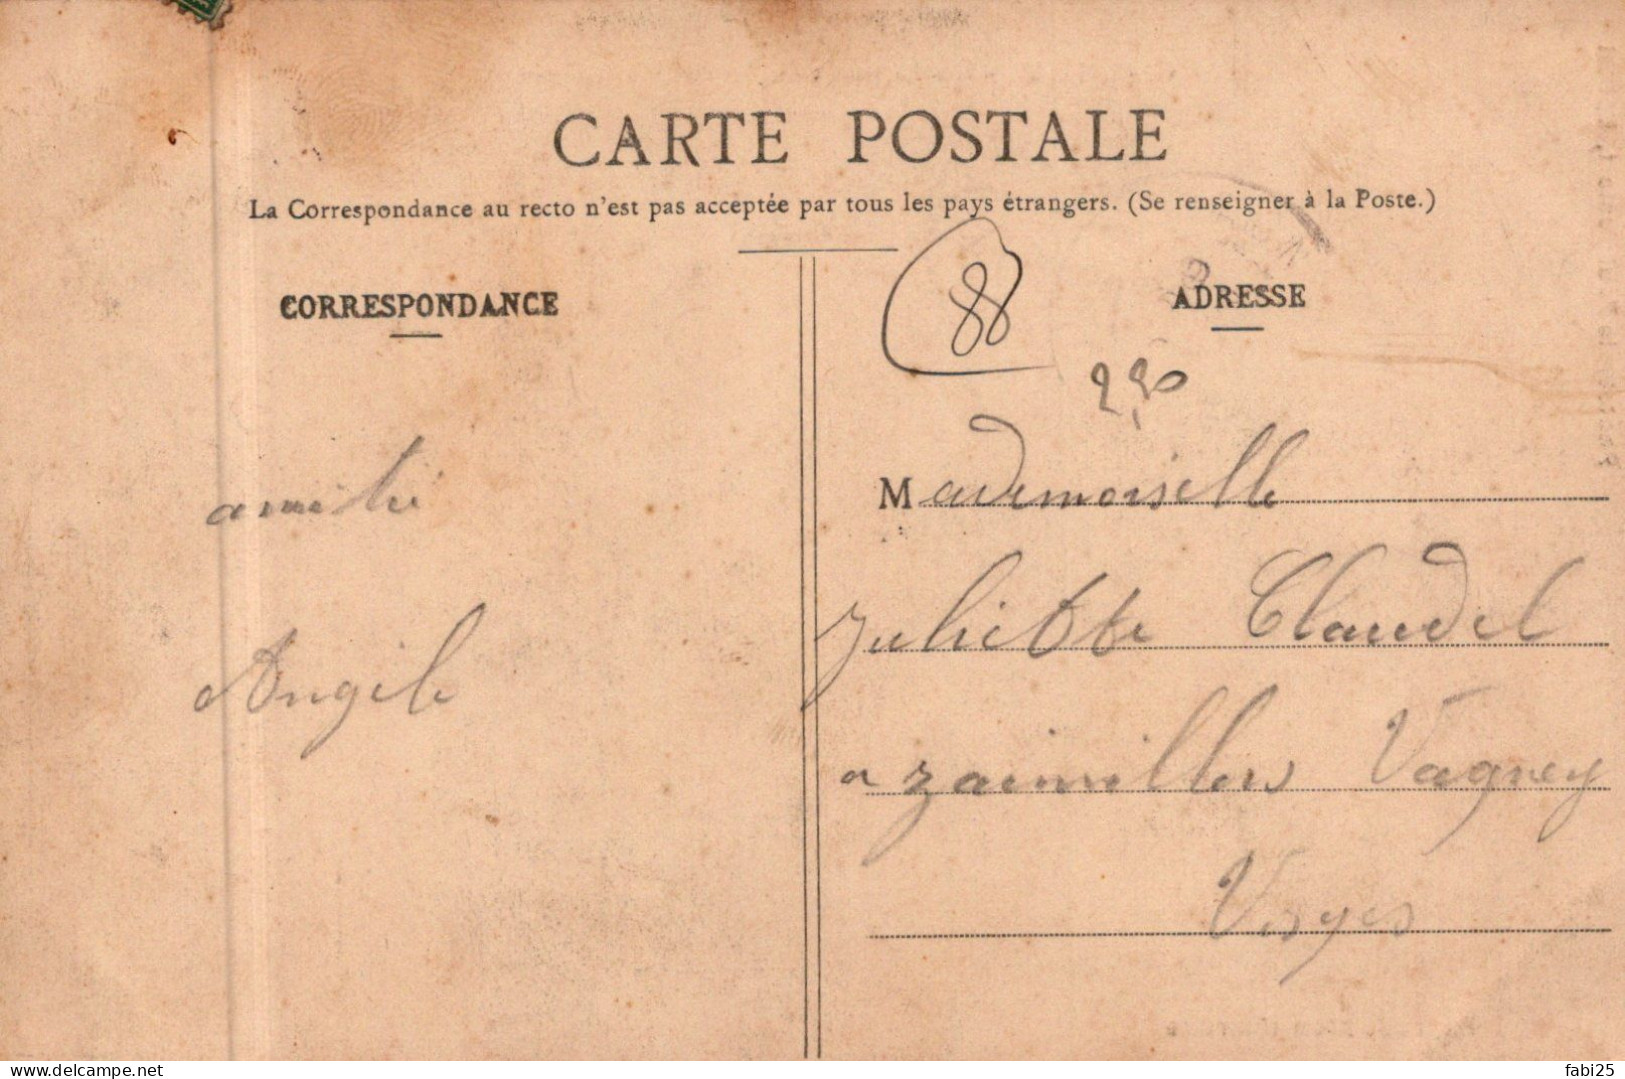 CARTE POSTALE
La Correspondance au recto n'est pas acceptée par tous les pays étrangers. (Se renseigner à la Poste.)
CORRESPONDANCE
amitié
Angèle
ADRESSE
88
2,90
Mademoiselle
Juliette Claudel
a zainvillers Vagney
Vosges
www.delcampe.net
fabi25